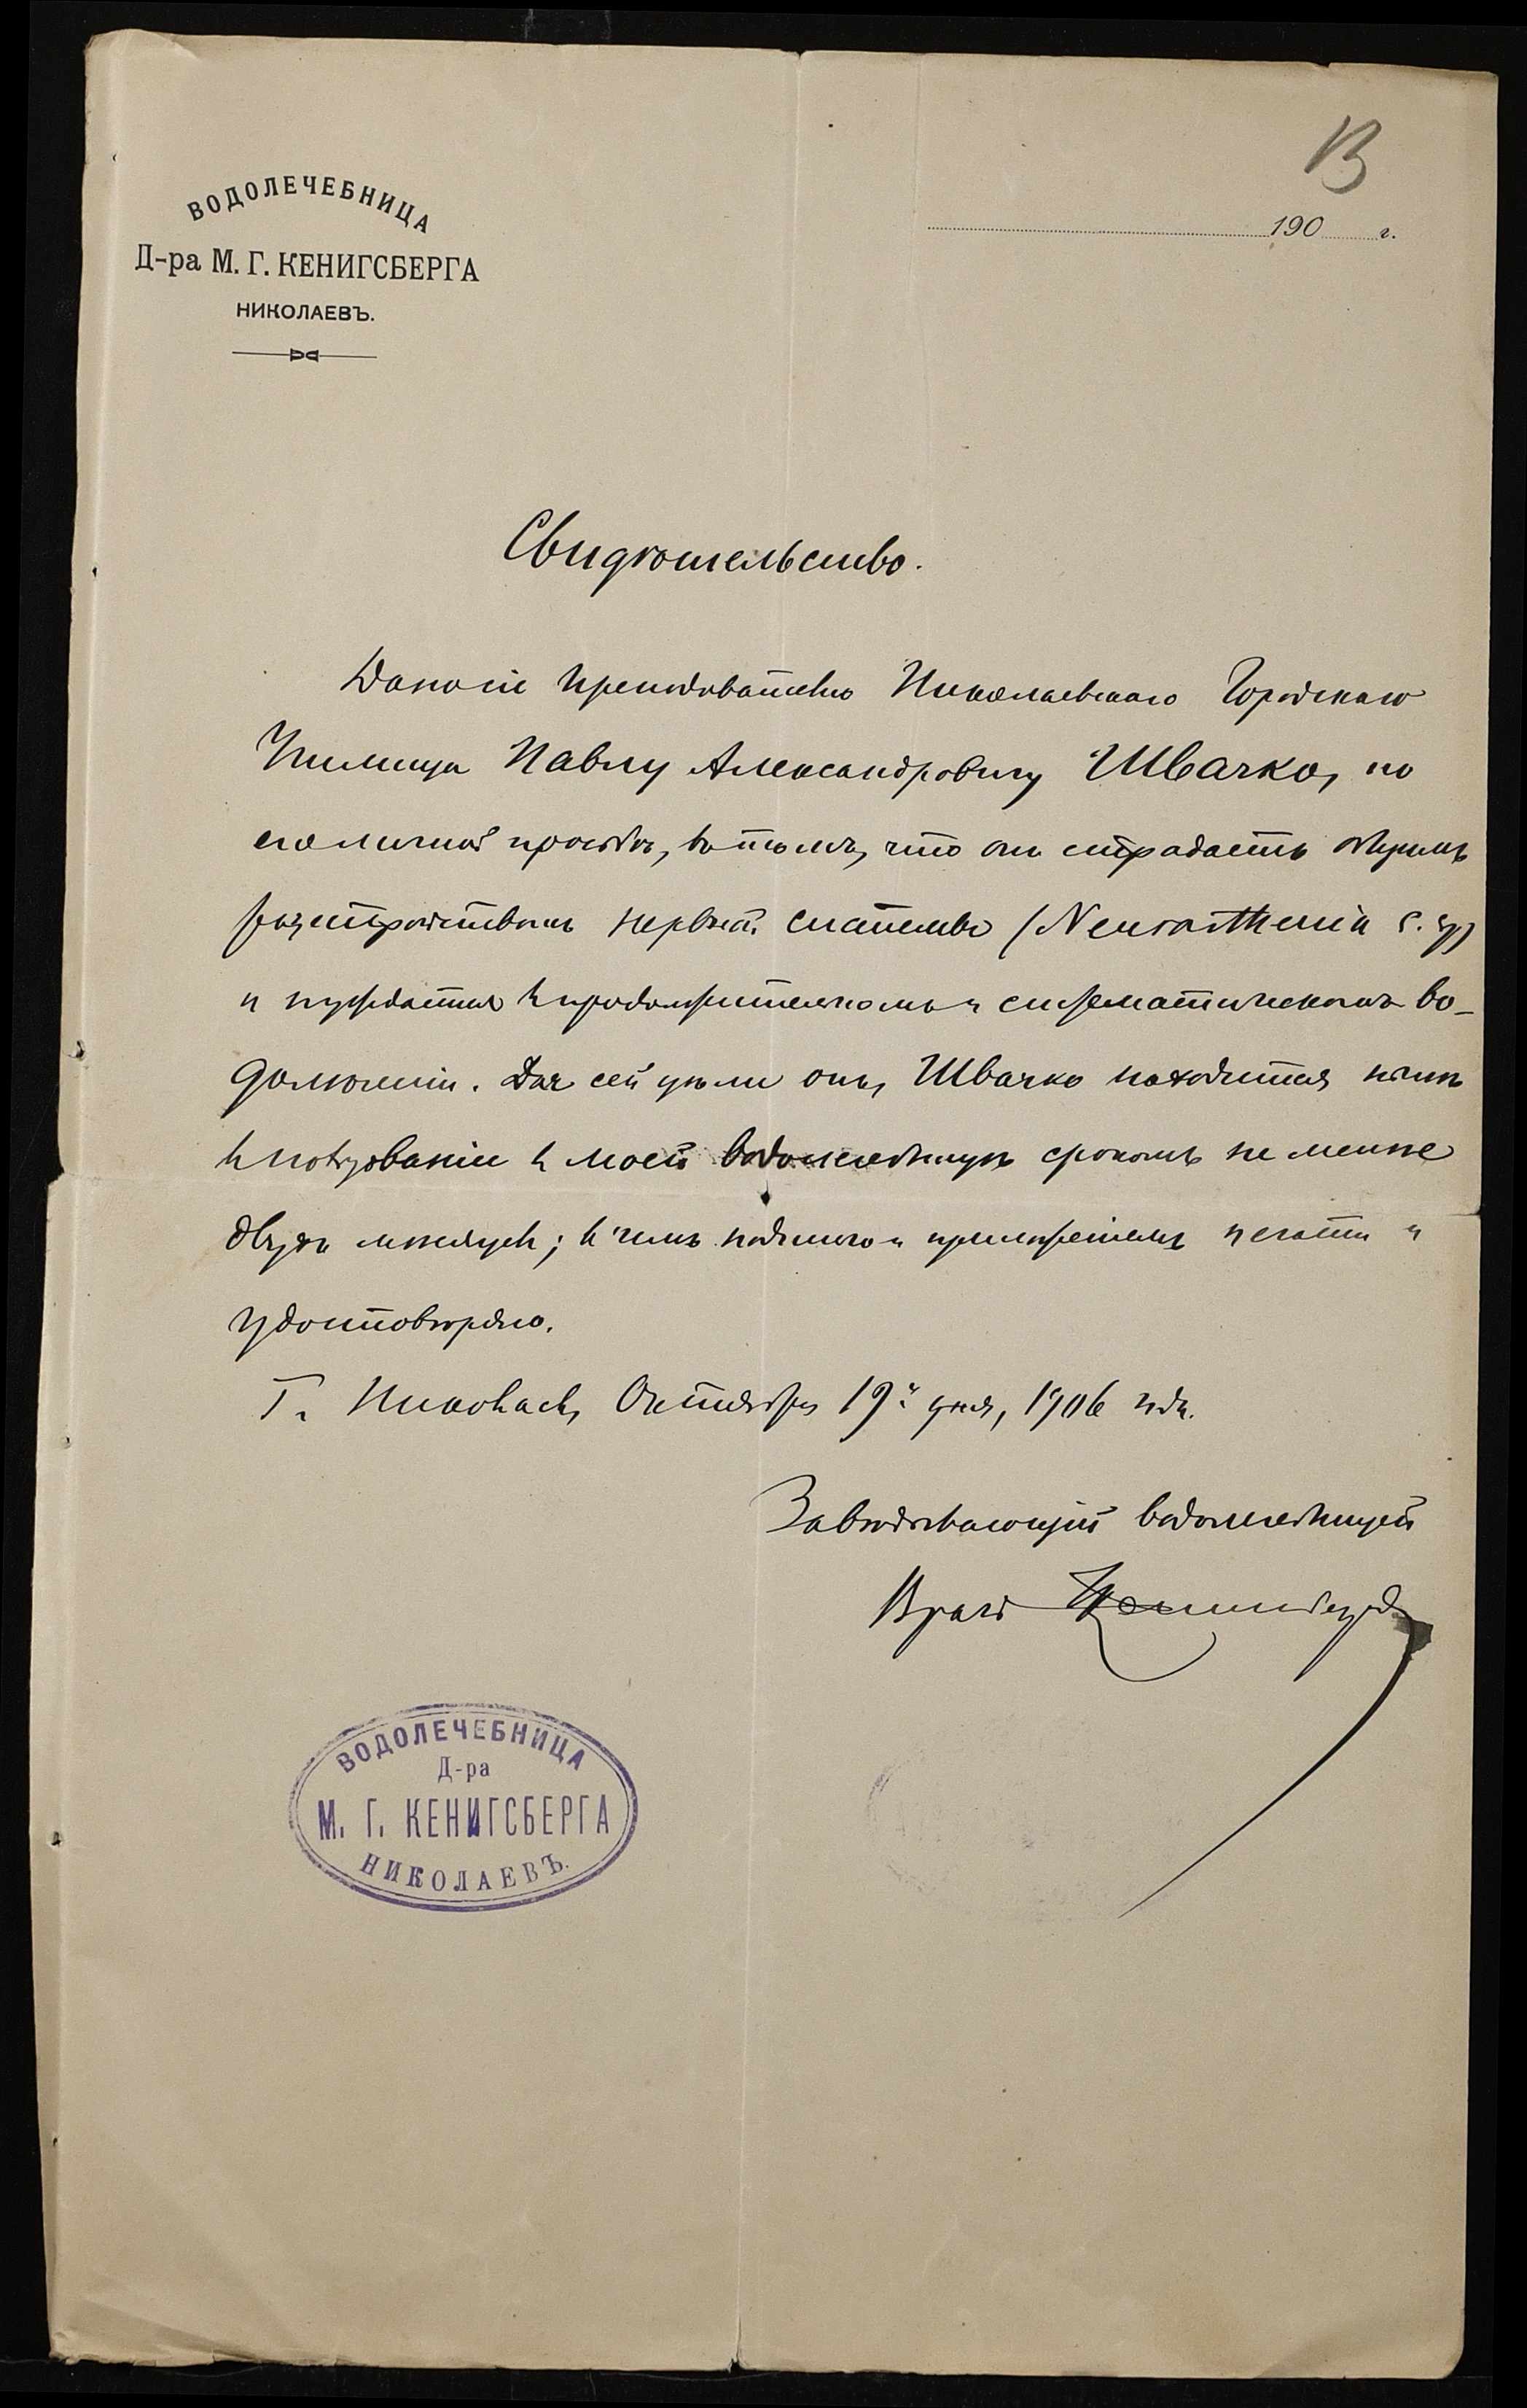 13
ВОДОЛЕЧЕБНИЦА
Д-ра М. Г. КЕНИГСБЕРГА
НИКОЛАЕВЪ.
190 г.
Свидѣтельство.
Дано сіе преподавателю Николаевскаго Городскаго
Училища Павлу Александровичу Швачко, по
его личной просьбѣ, въ томъ, что онъ страдаетъ общимъ
разстройствомъ нервной системы (Neurasthenia
и нуждается въ продолжительномъ и систематическомъ во-
долеченіи. Для сей цѣли онъ, Швачко находится нынѣ
въ пользованіи въ моей водолечебницѣ срокомъ не менѣе
двухъ мѣсяцевъ; въ чемъ подписью и приложеніемъ печати и
удостовѣряю.
Г. Николаевъ, Октября 19го дня, 1906 года.
Завѣдывающій водолечебницей
Врачъ Кенигсбергъ
ВОДОЛЕЧЕБНИЦА
Д-ра
М. Г. КЕНИГСБЕРГА
НИКОЛАЕВЪ.